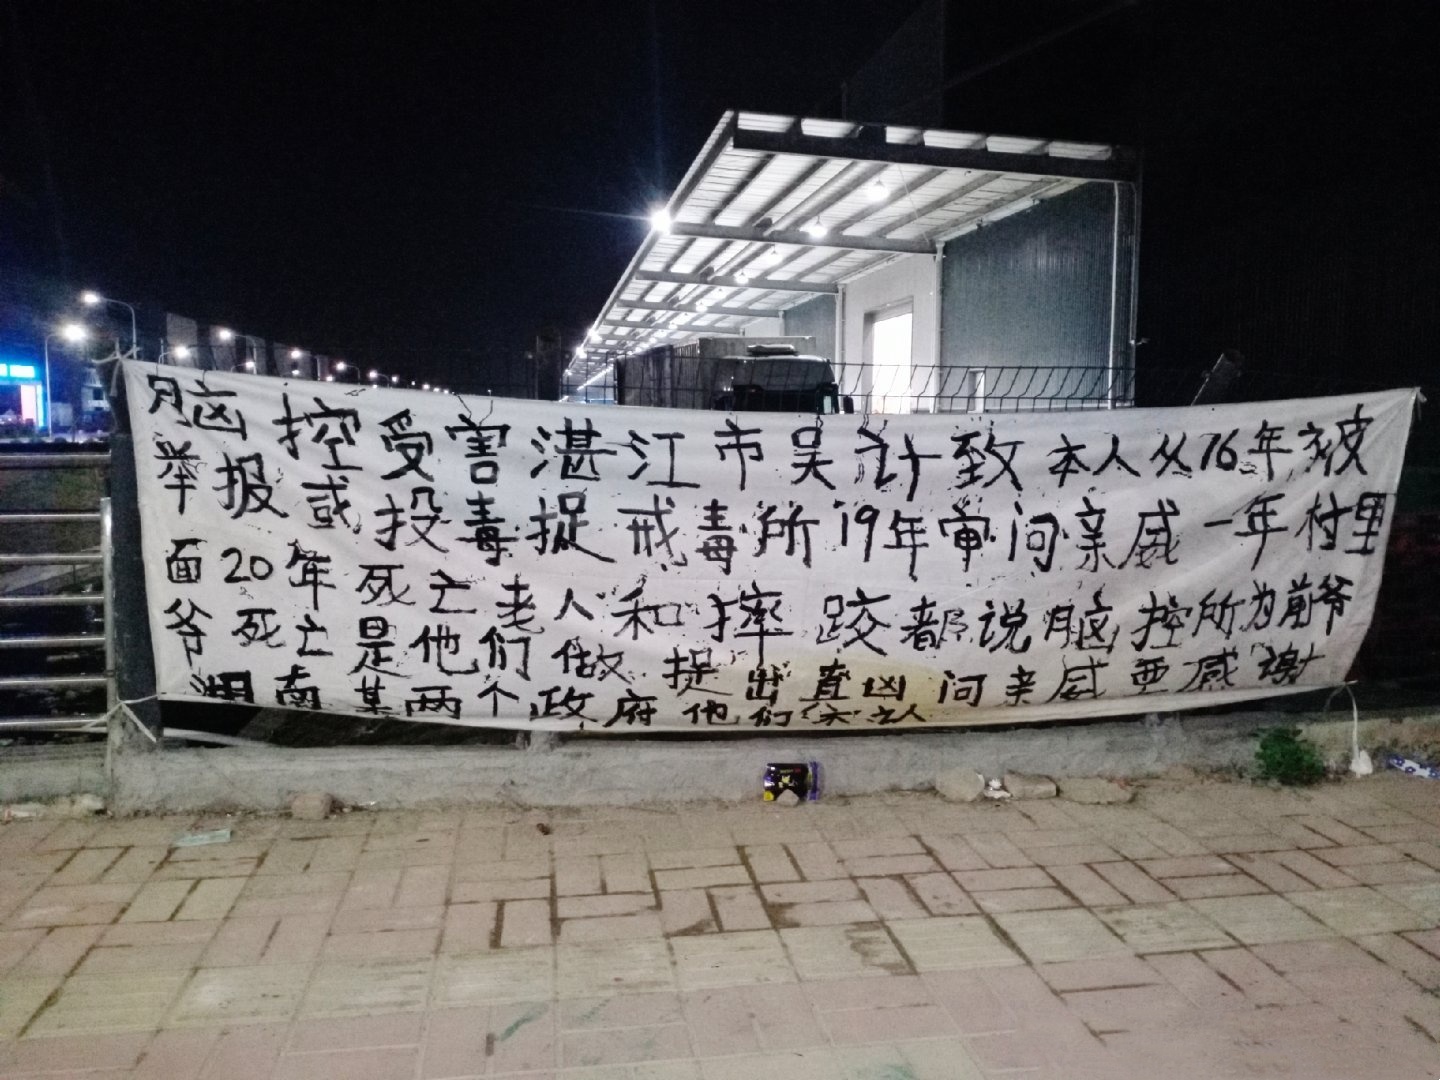 脑控受害湛江市吴计致本人从16年被
举报或投毒捉戒毒所19年审问亲戚一年村里
面20年死亡老人和摔跤都说脑控所为前爷
爷死亡是他们做捉出真凶问亲戚要感谢
湖南某两个政府他们